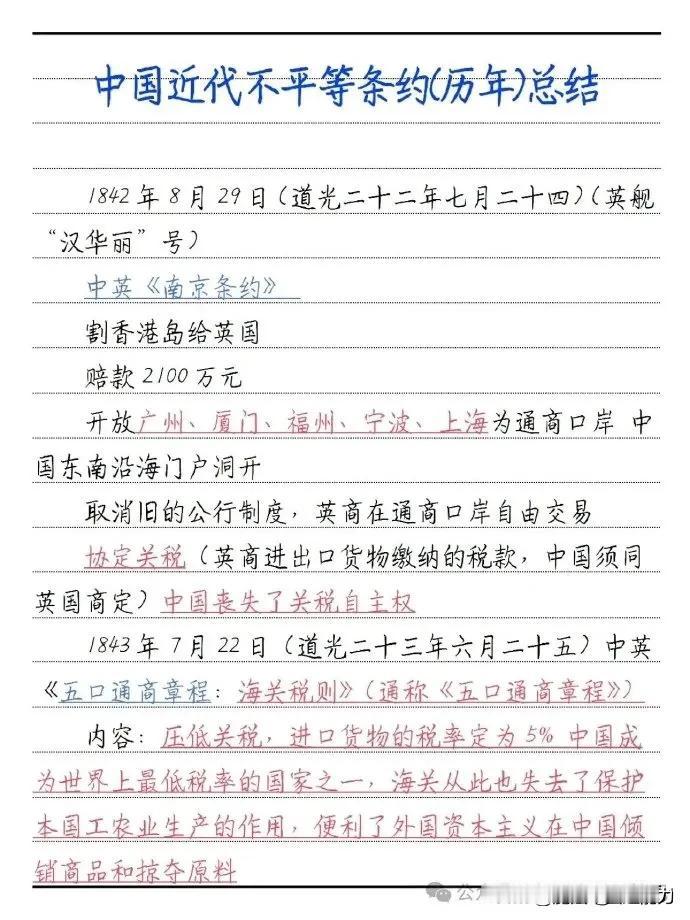 中国近代不平等条约(历年)总结
1842年8月29日(道光二十二年七月二十四)(英舰
“汉华丽”号)
中英《南京条约》
割香港岛给英国
赔款2100万元
开放广州、厦门、福州、宁波、上海为通商口岸 中
国东南沿海门户洞开
取消旧的公行制度，英商在通商口岸自由交易
协定关税（英商进出口货物缴纳的税款，中国须同
英国商定）中国丧失了关税自主权
1843年7月22日（道光二十三年六月二十五）中英
《五口通商章程：海关税则》（通称《五口通商章程》）
内容：压低关税，进口货物的税率定为5% 中国成
为世界上最低税率的国家之一，海关从此也失去了保护
本国工农业生产的作用，便利了外国资本主义在中国倾
销商品和掠夺原料